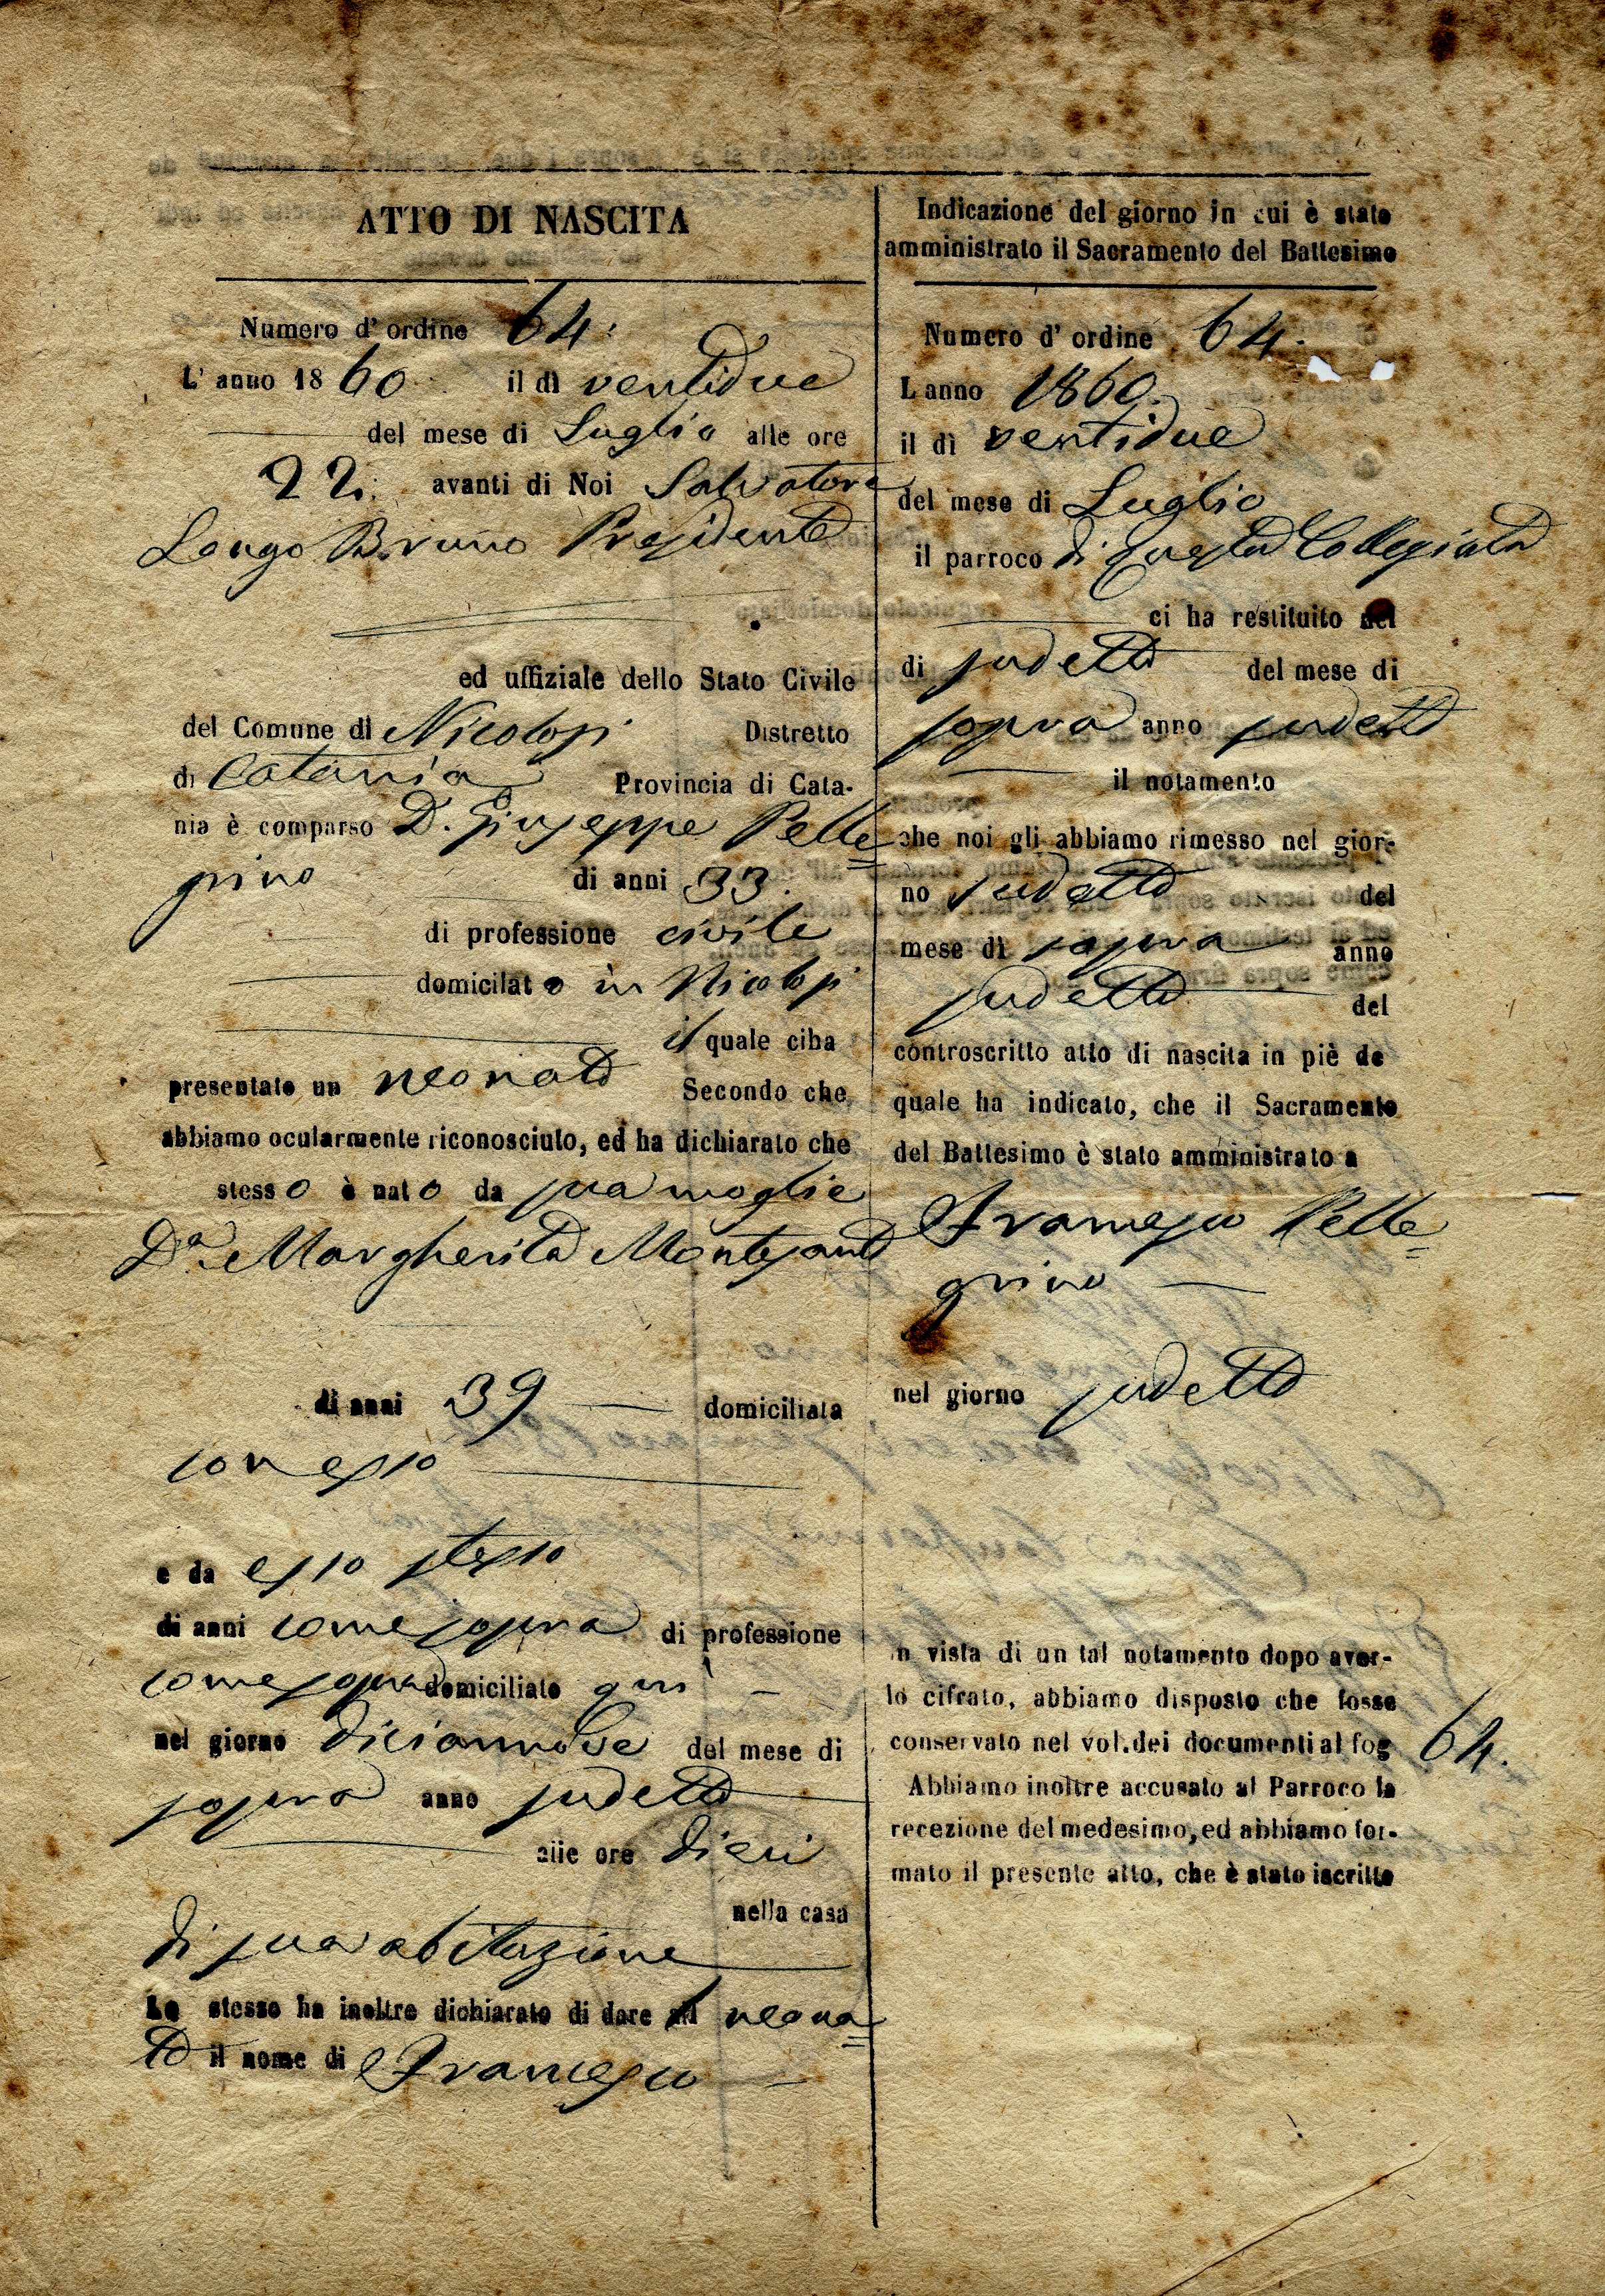 ATTO DI NASCITA
Numero d' ordine 64.
L' anno 1860 il dì ventidue
del mese di Luglio alle ore
22. avanti di Noi Salvatore
Longo Bruno Presidente
ed uffiziale dello Stato Civile
del Comune di Nicolosi Distretto
di Catania Provincia di Cata-
nia è comparso D. Giuseppe Pelle=
grino di anni 33.
di professione civile
domicilato in Nicolosi
il quale ciha
presentato un neonato Secondo che
abbiamo ocularmente riconosciuto, ed ha dichiarato che
stesso è nato da sua moglie
Da. Margherita Montesanto
di anni 39 domiciliata
con esso
e da esso stesso
di anni come sopra di professione
come sopra domiciliato qui
nel giorno diciannove del mese di
sopra anno sudetto
alle ore dieci
nella casa
di sua abitazione
Lo stesso ha inoltre dichiarato di dare al neona=
to il nome di Francesco
Indicazione del giorno in cui è stato
amministrato il Sacramento del Battesimo
Numero d' ordine 64.
L anno 1860.
il dì ventidue
del mese di Luglio
il parroco di questa Collegiata
ci ha restituito nel
di sudetto del mese di
sopra anno sudetto
il notamento
che noi gli abbiamo rimesso nel gior-
no sudetto del
mese di sopra anno
sudetto del
controscritto atto di nascita in piè de
quale ha indicato, che il Sacramento
del Battesimo è stato amministrato a
Francesco Pelle=
grino
nel giorno sudetto
n vista di un tal notamento dopo aver-
lo cifrato, abbiamo disposto che fosse
conservato nel vol. dei documenti al fog 64.
Abbiamo inoltre accusato al Parroco la
recezione del medesimo, ed abbiamo for-
mato il presente atto, che è stato iscritto